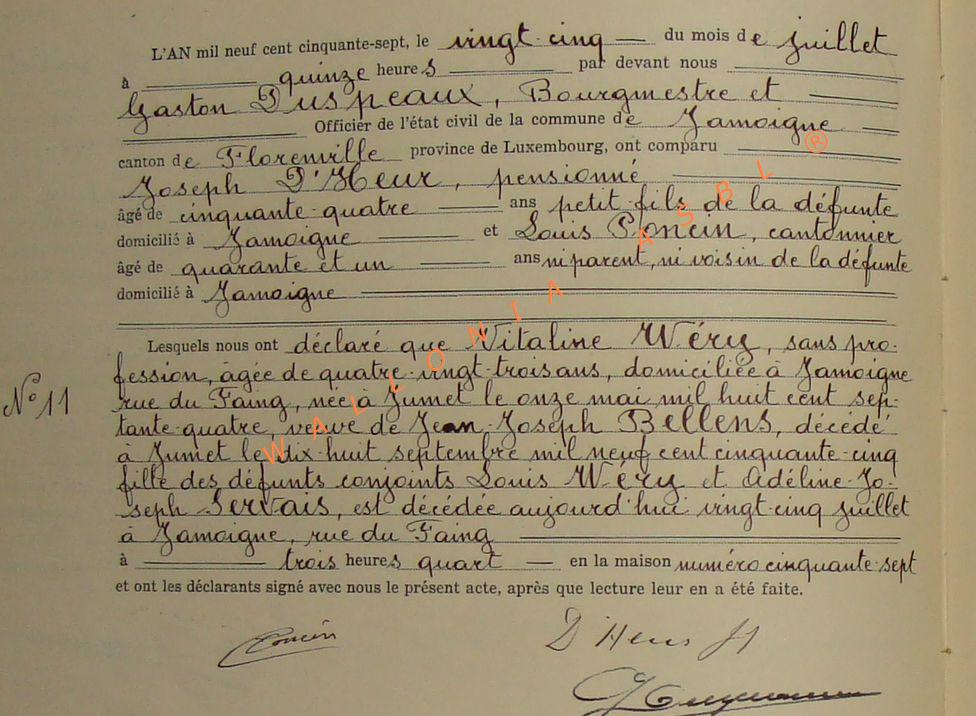 L'AN mil neuf cent cinquante-sept, le vingt-cinq du mois de juillet
à quinze heures par devant nous
Gaston Duspeaux, Bourgmestre et
Officier de l'état civil de la commune de Jamoigne
canton de Florenville province de Luxembourg, ont comparu
Joseph D'Heur, pensionné
âgé de cinquante-quatre ans petit-fils de la défunte
domicilié à Jamoigne et Louis Poncin, cantonnier
âgé de quarante et un ans ni parent, ni voisin de la défunte
domicilié à Jamoigne
Lesquels nous ont déclaré que Vitaline Wéry, sans pro-
fession, âgée de quatre-vingt-trois ans, domiciliée à Jamoigne
N° 11 rue du Faing, née à Jumet le onze mai mil huit cent sep-
tante-quatre, veuve de Jean-Joseph Bellens, décédé
à Jumet le dix-huit septembre mil neuf cent cinquante-cinq
fille des défunts conjoints Louis Wéry et Adéline-Jo-
seph Servais, est décédée aujourd'hui vingt-cinq juillet
à Jamoigne, rue du Faing
à trois heures quart en la maison numéro cinquante-sept
et ont les déclarants signé avec nous le présent acte, après que lecture leur en a été faite.
Poncin D'Heur
WALLONIA ASBL ®